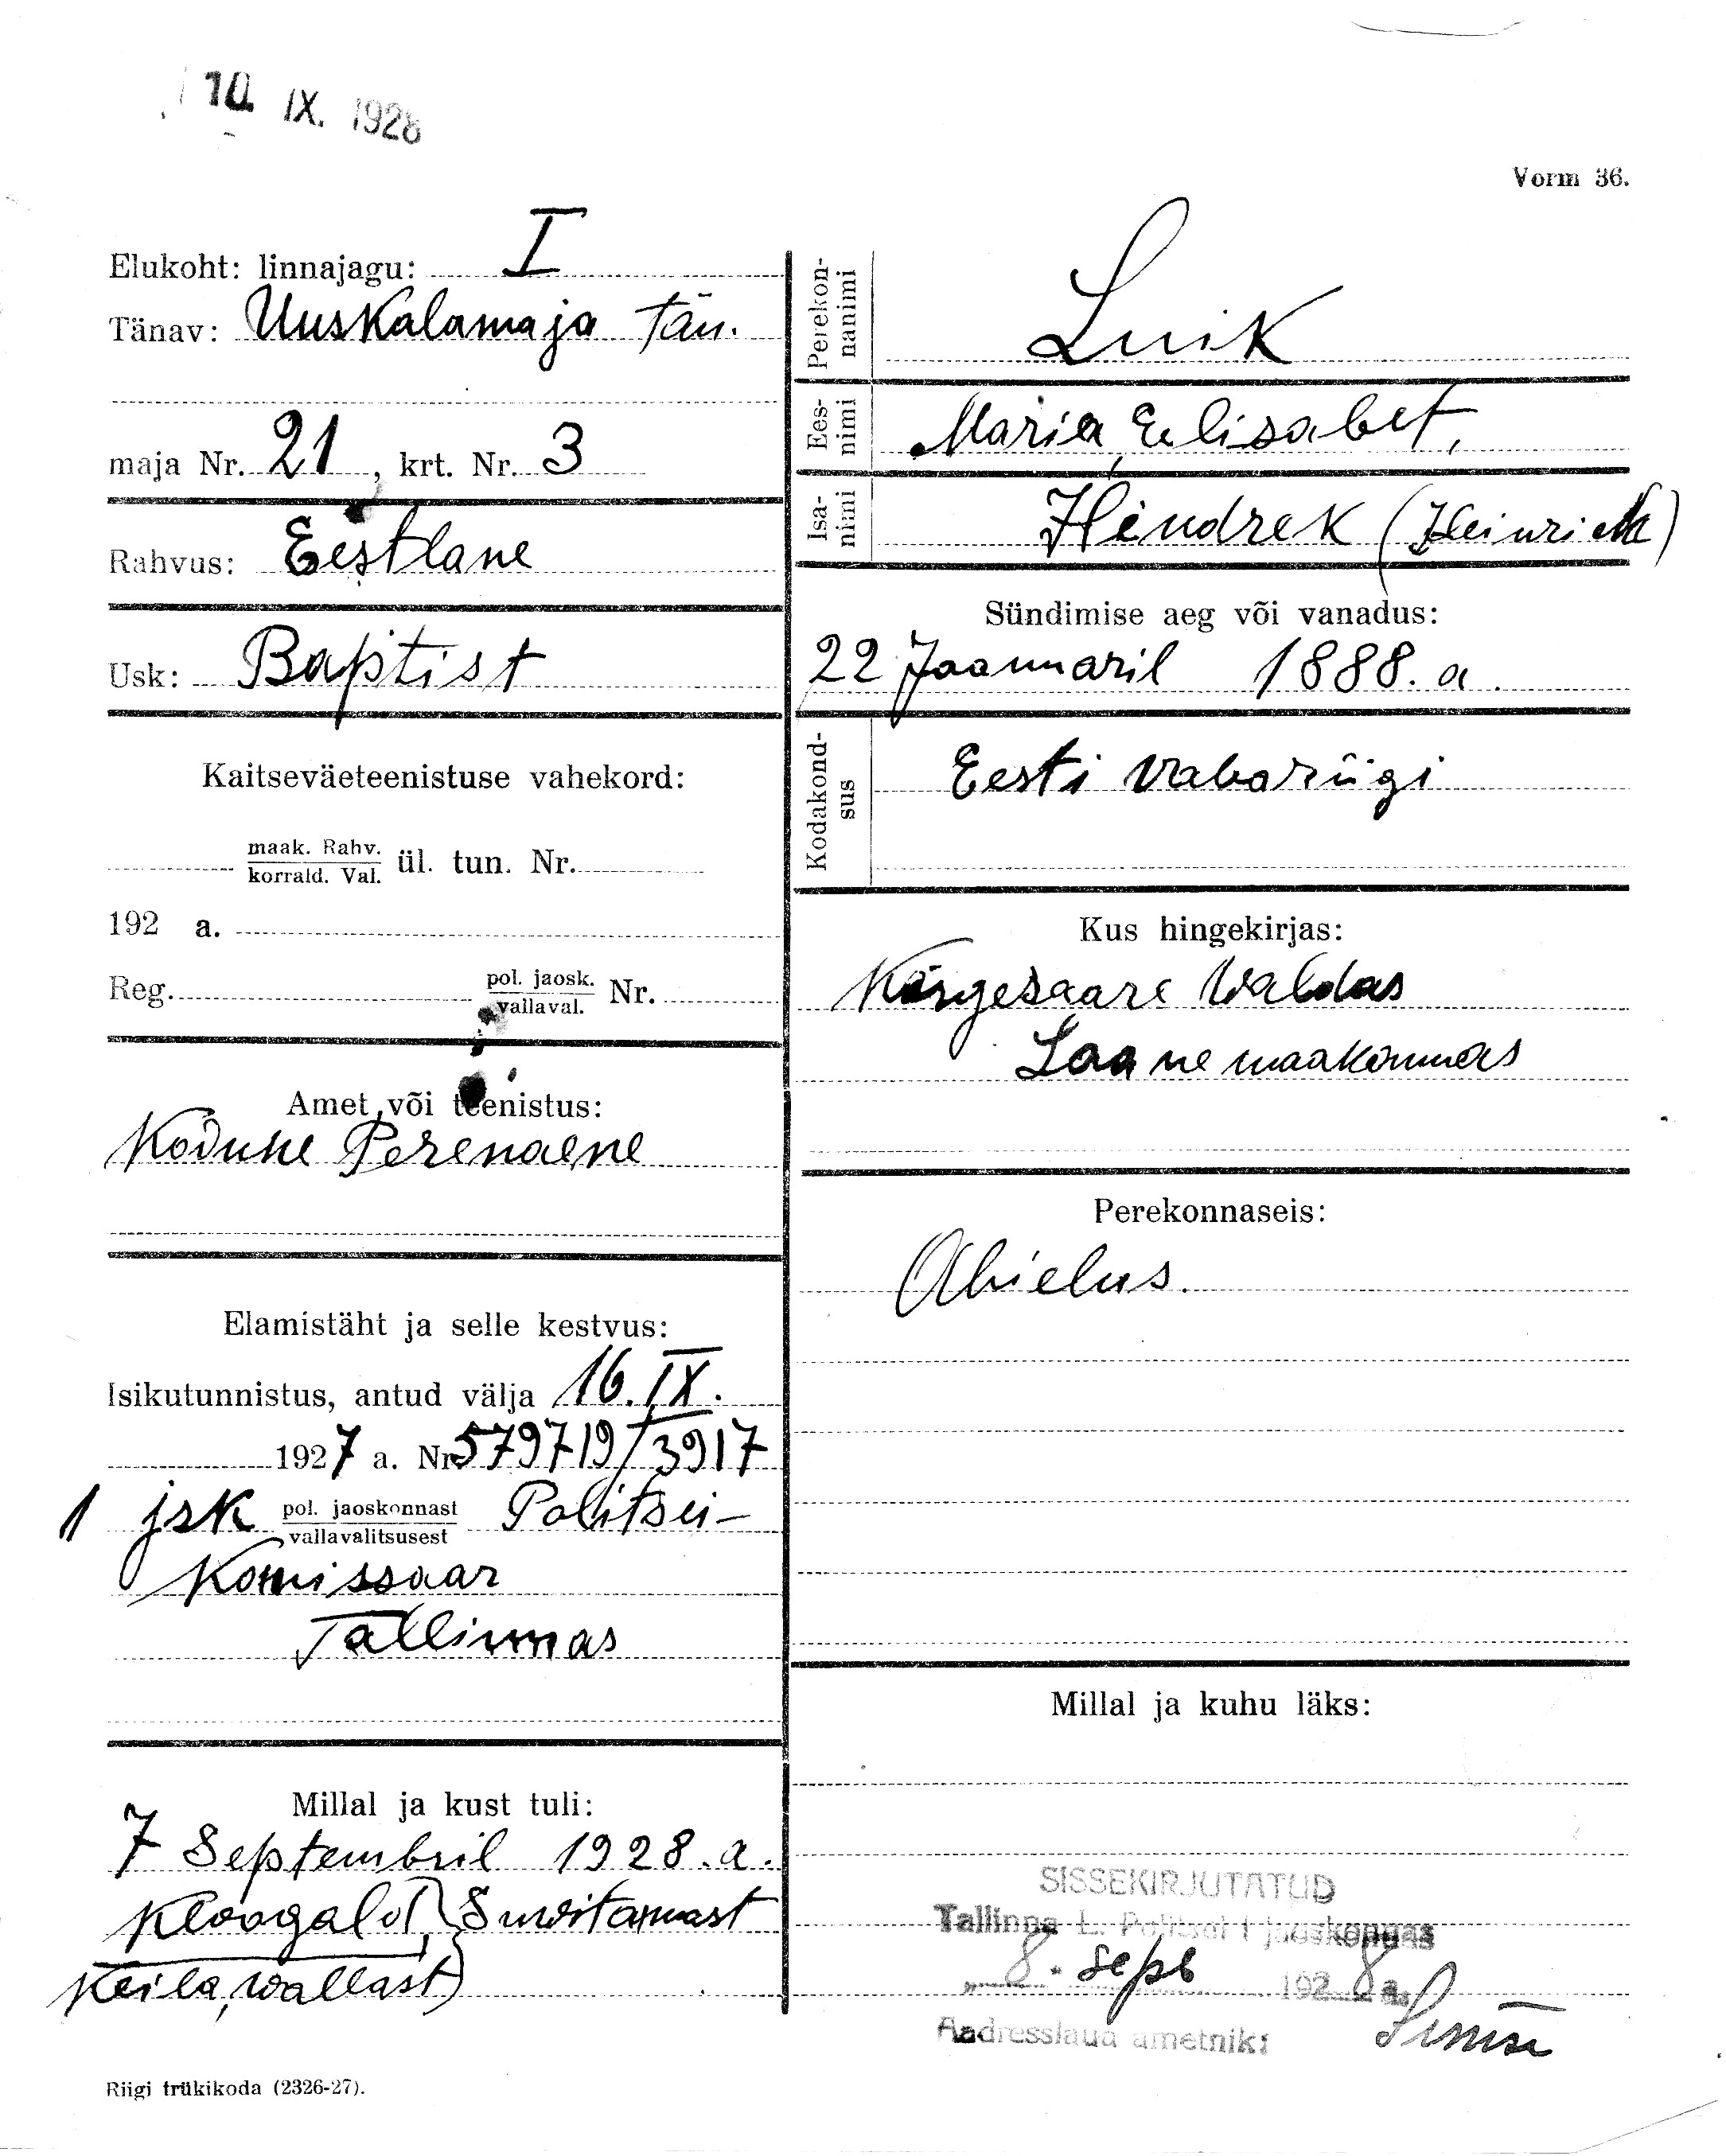 10. IX. 1928
Vorm 36.
Elukoht: linnajagu: I
Tänav: UusKalamaja tän.
maja Nr. 21, krt. Nr. 3
Rahvus: Eestlane
Usk: Baptist
Kaitseväeteenistuse vahekord:
maak. Rahv.
korrald. Val. ül. tun. Nr.
192 a.
Reg. pol. jaosk.
vallaval. Nr.
Amet või teenistus:
Kodune Perenaene
Elamistäht ja selle kestvus:
Isikutunnistus, antud välja 16. IX.
1927 a. Nr 579719/3917
1 jsk pol. jaoskonnast
vallavalitsusest Politsei-
Komissaar
Tallinnas
Millal ja kust tuli:
7 Septembril 1928. a.
Kloogalt, Suwitamast
Keila, wallast)
Riigi trükikoda (2326-27).
Perekon-
nanimi
Luik
Ees-
nimi
Maria, Eelisabet,
Isa-
nimi
Hendrek (Heinrich)
Sündimise aeg või vanadus:
22 Jaanuaril 1888. a.
Kodakond-
sus
Eesti vabariigi
Kus hingekirjas:
Kõrgesaare Waldas
Läänemaakonnas
Perekonnaseis:
Abielus.
Millal ja kuhu läks:
SISSEKIRJUTATUD
Tallinna L. Politsei I jaoskonnas
„ 8. sept 1928 a.
Aadresslaua ametnik: